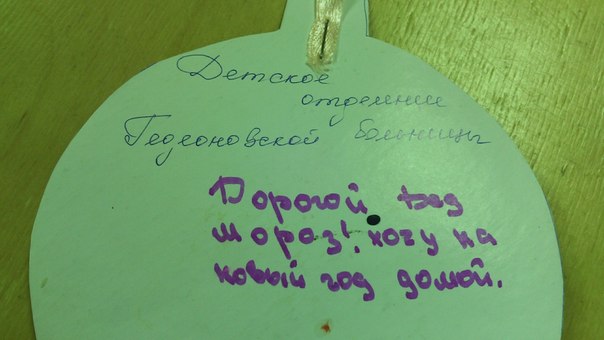 Детское
отделение
Гедеоновской больницы
Дорогой Дед
Мороз! хочу на
новый год домой.